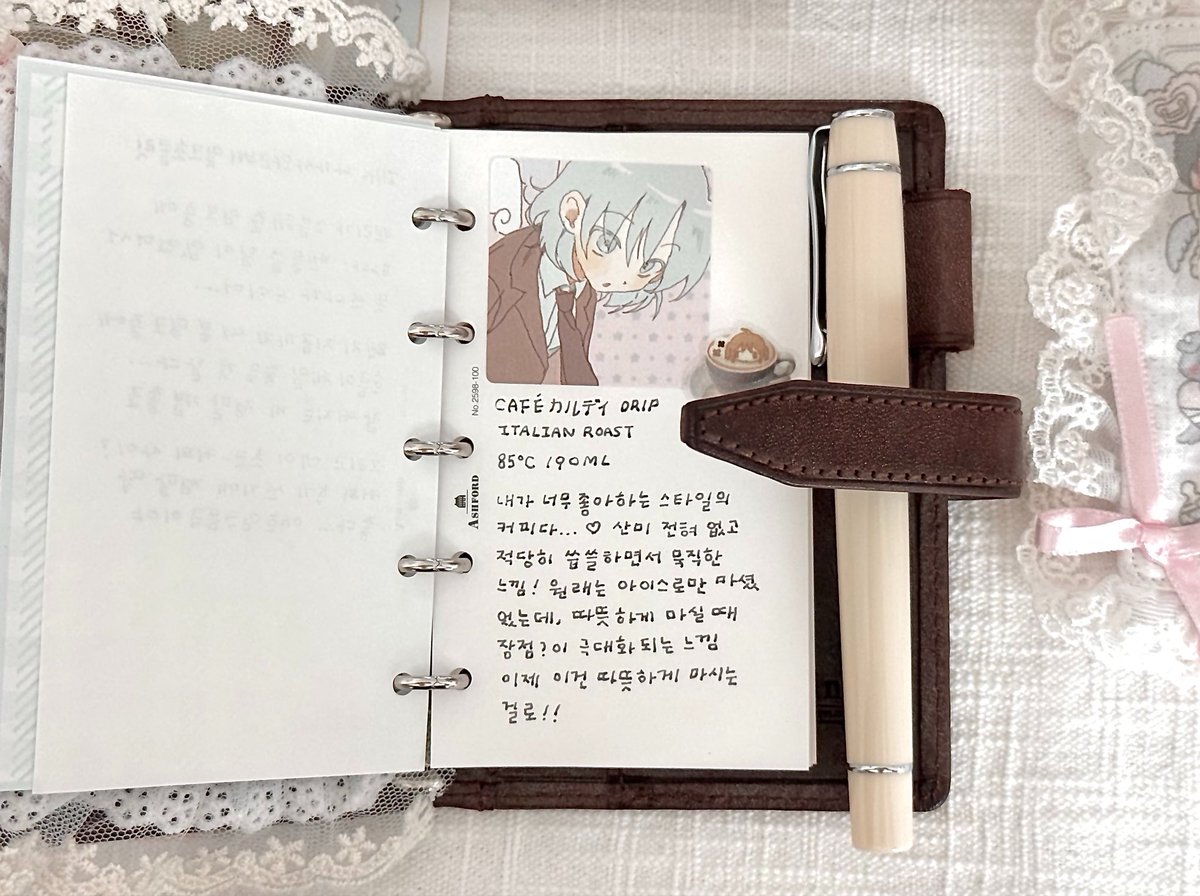 CAFÉ カルディ DRIP
ITALIAN ROAST
85°C 190ML
내가 너무 좋아하는 스타일의
커피다... ♡ 산미 전혀 없고
적당히 씁쓸하면서 묵직한
느낌! 원래는 아이스로만 마셨
었는데, 따뜻하게 마실 때
장점?이 극대화 되는 느낌
이제 이건 따뜻하게 마시는
걸로!!
No.2598-100
ASHFORD